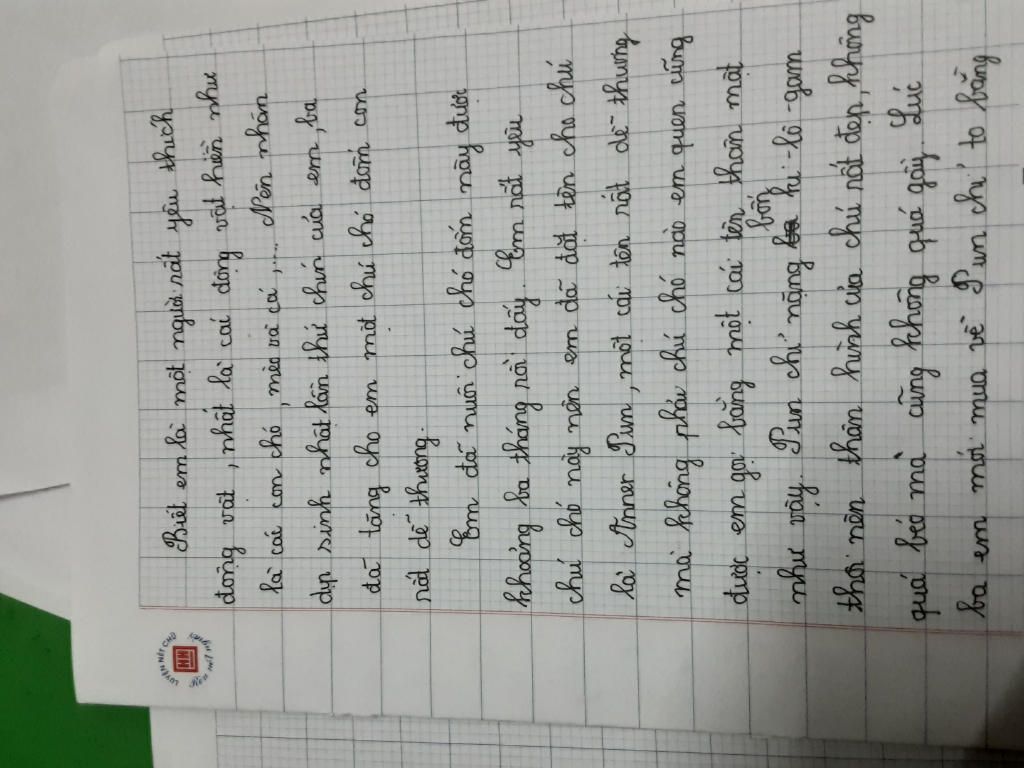 LUYỆN NÉT CHỮ
Rèn nết người
Biết em là một người rất yêu thích
động vật, nhất là cái động vật hiền như
là cái con chó, mèo và cá,.... Nên nhân
dịp sinh nhật lần thứ chín của em, ba
đã tặng cho em một chú chó đốm con
rất dễ thương.
Em đã nuôi chú chó đốm này được
khoảng ba tháng rồi đấy. Em rất yêu
chú chó này nên em đã đặt tên cho chú
là Anner Pun, một cái tên rất dễ thương
mà không phải chú chó nào em quen cũng
được em gọi bằng một cái tên thân mật
như vậy. Pun chỉ nặng bốn ki-lô-gam
thôi nên thân hình của chú rất đẹp, không
quá béo mà cũng không quá gầy. Lúc
ba em mới mua về Pun chỉ to bằng